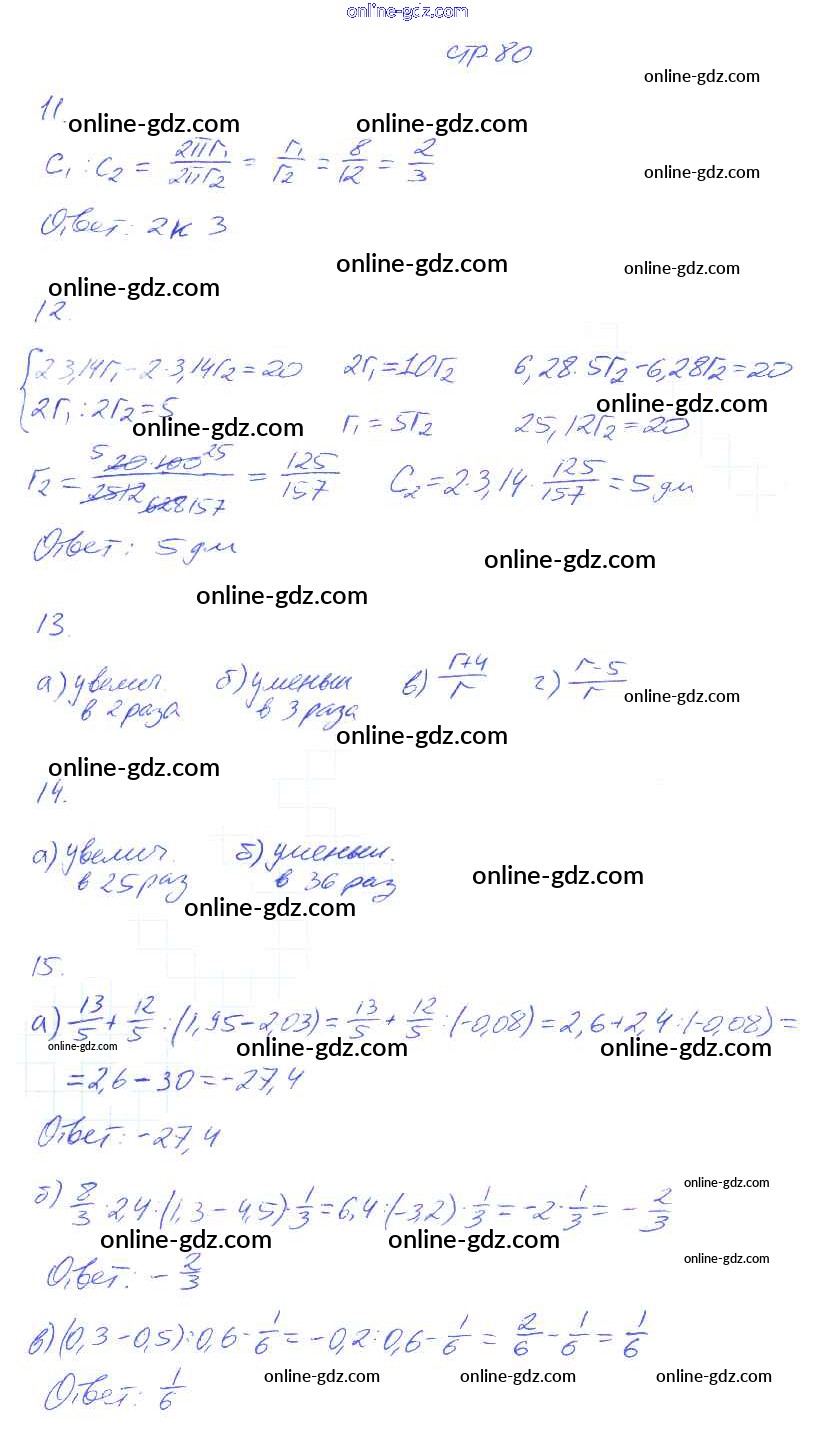 online-gdz.com
стр 80
online-gdz.com
11.
online-gdz.com online-gdz.com
C₁ : C₂ = 2πr₁/2πr₂ = r₁/r₂ = 8/12 = 2/3
online-gdz.com
Ответ: 2 к 3
online-gdz.com online-gdz.com
online-gdz.com
12.
{2 3,14r₁ - 2·3,14r₂ = 20 2r₁ = 10r₂ 6,28·5r₂ - 6,28r₂ = 20
online-gdz.com
2r₁ : 2r₂ = 5 r₁ = 5r₂ 25,12r₂ = 20
online-gdz.com
r₂ = 5 20·100 25/2512 628 157 = 125/157 C₂ = 2·3,14·125/157 = 5 дм
Ответ: 5 дм
online-gdz.com
online-gdz.com
13.
а) увелич. б) уменьш в) r+4/r г) r-5/r
в 2 раза в 3 раза
online-gdz.com
online-gdz.com
online-gdz.com
14.
а) увелич. б) уменьш.
в 25 раз в 36 раз
online-gdz.com
online-gdz.com
15.
а) 13/5 + 12/5 : (1,95 - 2,03) = 13/5 + 12/5 : (-0,08) = 2,6 + 2,4 : (-0,08) =
online-gdz.com online-gdz.com online-gdz.com
= 2,6 - 30 = -27,4
Ответ: -27,4
online-gdz.com
б) 8/3 · 2,4 : (1,3 - 4,5) · 1/3 = 6,4 : (-3,2) · 1/3 = -2 · 1/3 = - 2/3
online-gdz.com online-gdz.com
online-gdz.com
Ответ: - 2/3
в) (0,3 - 0,5) : 0,6 - 1/6 = -0,2 : 0,6 - 1/6 = 2/6 - 1/6 = 1/6
online-gdz.com online-gdz.com online-gdz.com
Ответ: 1/6